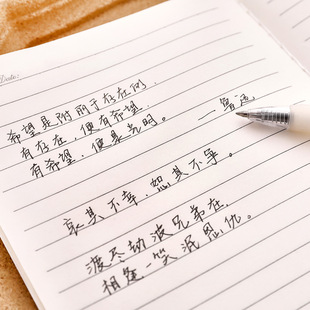 Date:
希望是附丽于存在的.
有存在, 便有希望.
有希望, 便是光明。 ——鲁迅.
哀其不幸, 怒其不争。
渡尽劫波兄弟在,
相逢一笑泯恩仇。